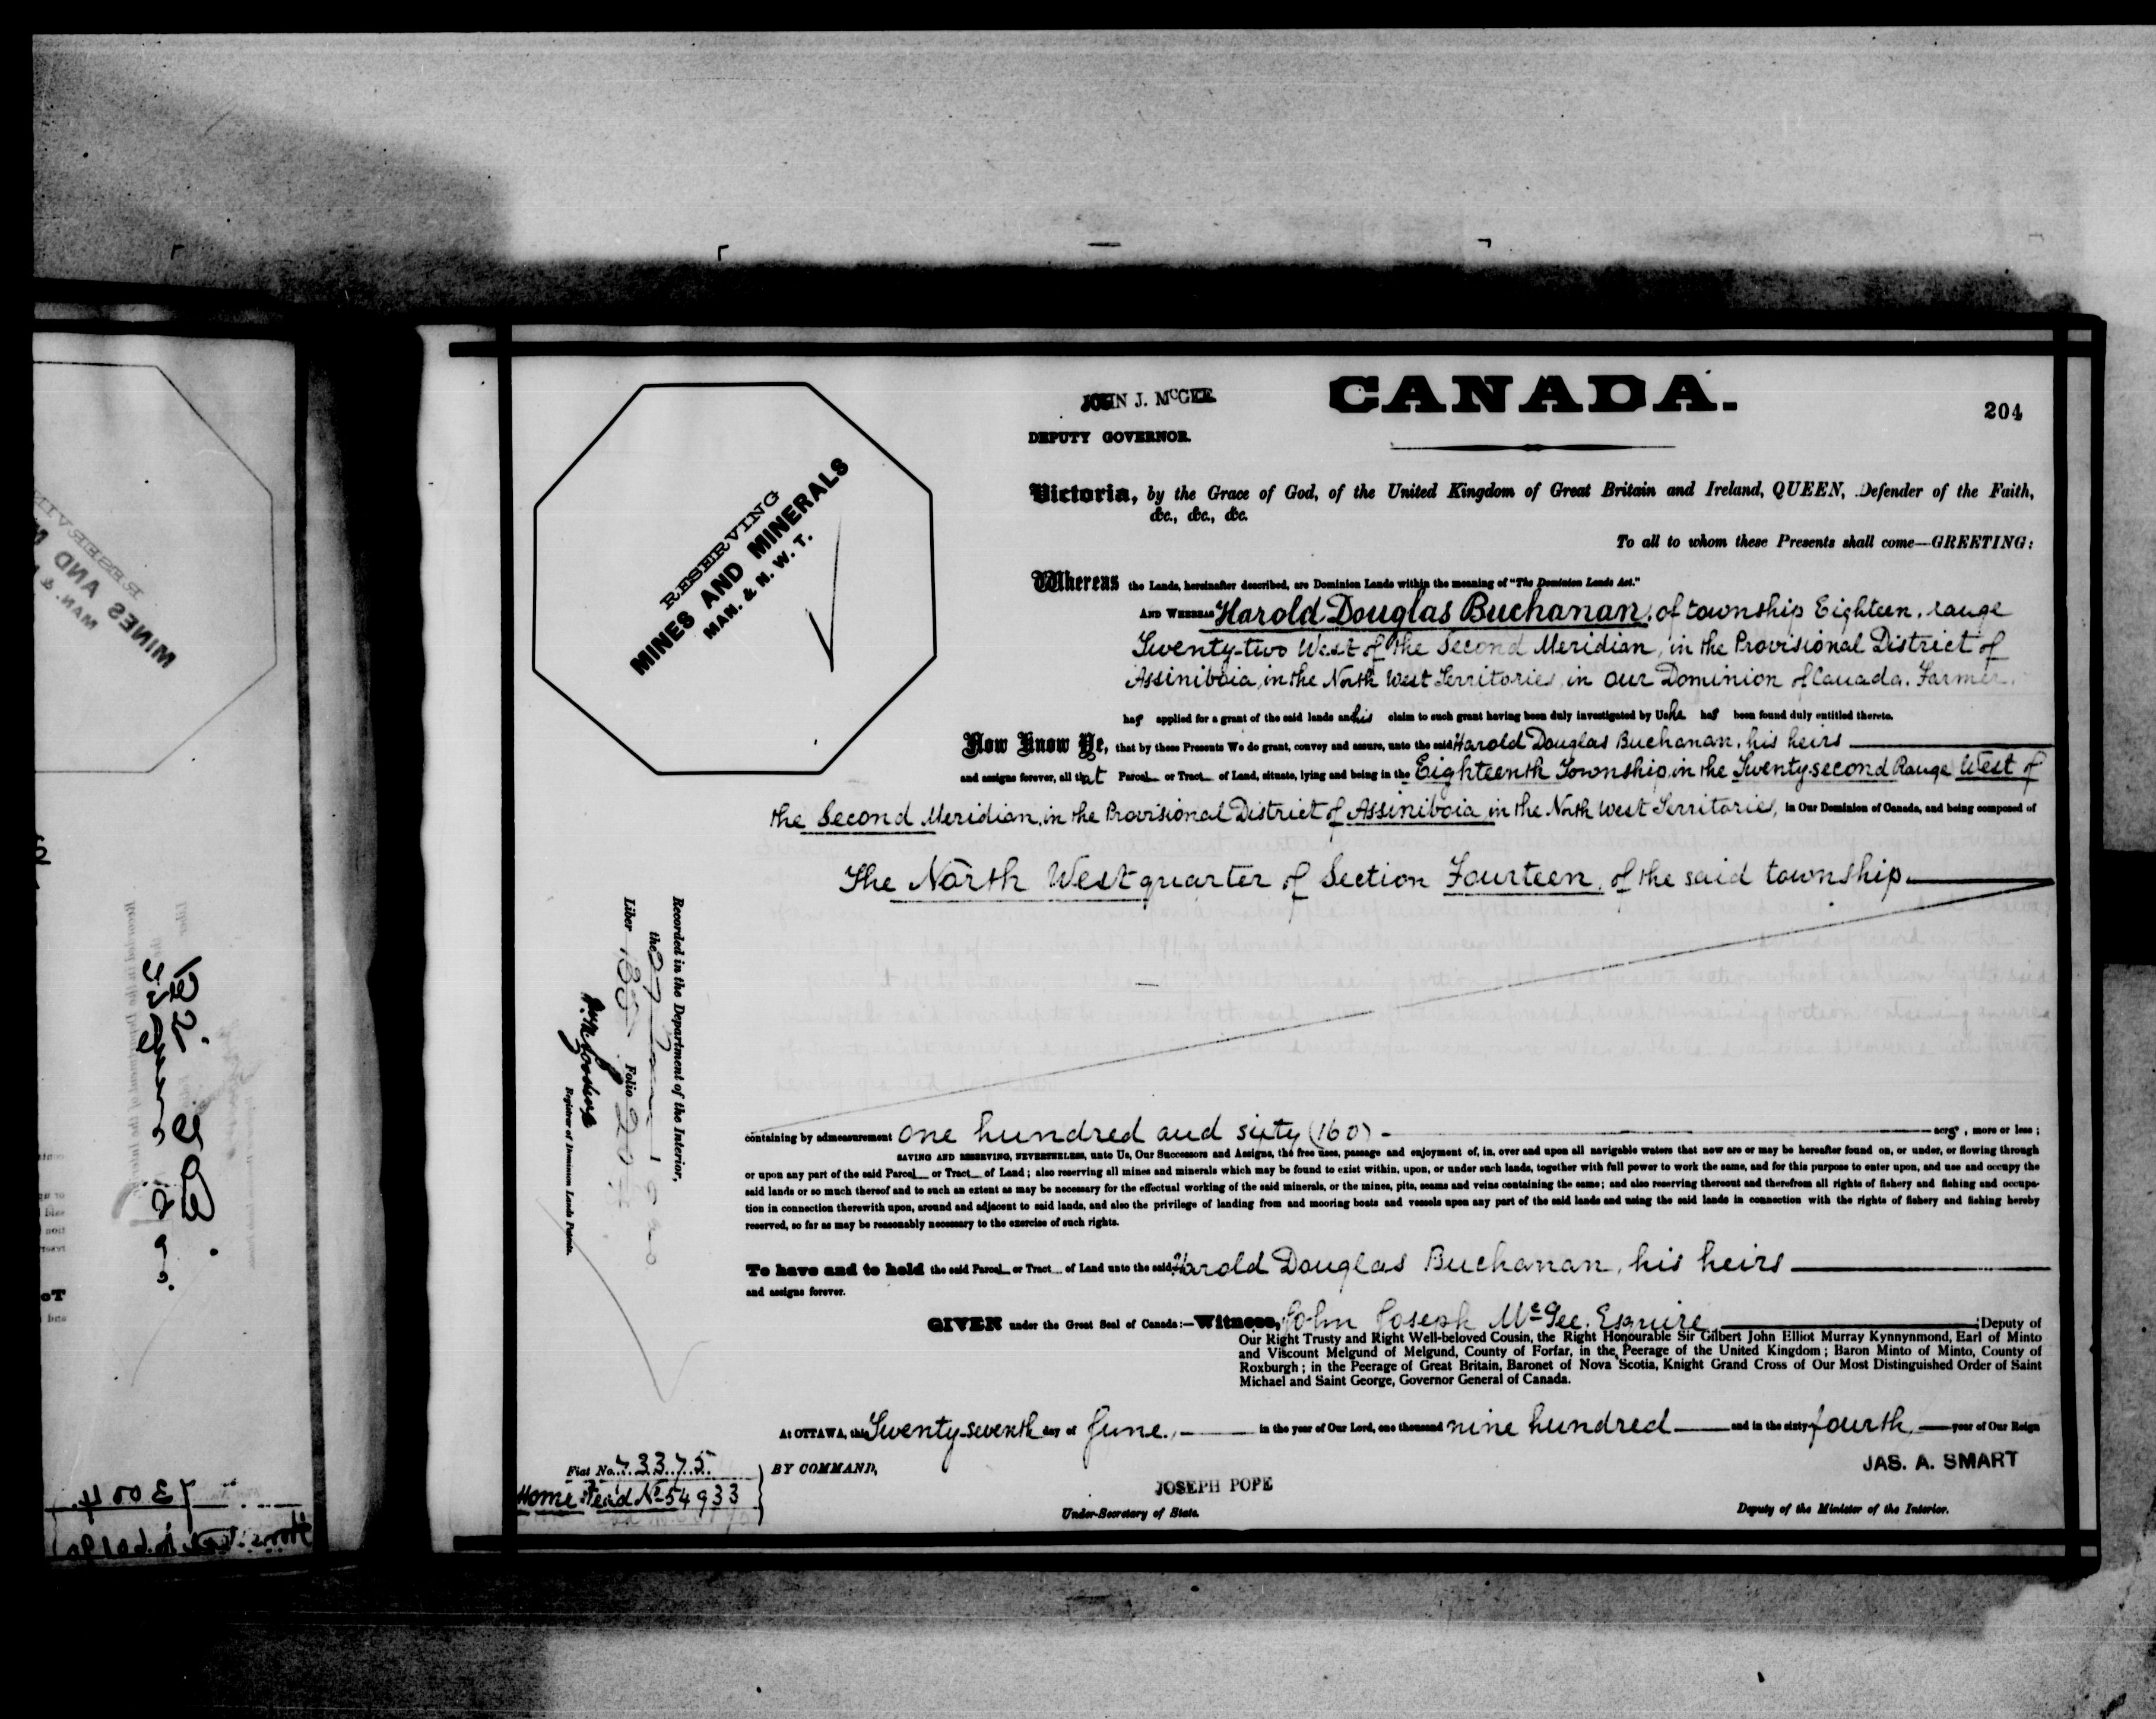 JOHN J. McGEE
DEPUTY GOVERNOR.
CANADA.
204
RESERVING
MINES AND MINERALS
MAN. & N. W. T.
Victoria, by the Grace of God, of the United Kingdom of Great Britain and Ireland, QUEEN, Defender of the Faith,
&c., &c., &c.
To all to whom these Presents shall come—GREETING:
Whereas the Lands, hereinafter described, are Dominion Lands within the meaning of "The Dominion Lands Act."
AND WHEREAS Harold Douglas Buchanan, of township Eighteen, range
Twenty-two West of the Second Meridian, in the Provisional District of
Assiniboia, in the North West Territories, in Our Dominion of Canada. Farmer,
has applied for a grant of the said lands and his claim to such grant having been duly investigated by Us he has been found duly entitled thereto.
Now Know Ye, that by these Presents We do grant, convey and assure, unto the said Harold Douglas Buchanan, his heirs
and assigns forever, all that Parcel or Tract of Land, situate, lying and being in the Eighteenth Township, in the Twenty-second Range West of
the Second Meridian, in the Provisional District of Assiniboia in the North West Territories, in Our Dominion of Canada, and being composed of
The North West quarter of Section Fourteen, of the said township.
containing by admeasurement one hundred and sixty (160) acres, more or less;
SAVING AND RESERVING, NEVERTHELESS, unto Us, Our Successors and Assigns, the free uses, passage and enjoyment of, in, over and upon all navigable waters that now are or may be hereafter found on, or under, or flowing through
or upon any part of the said Parcel or Tract of Land; also reserving all mines and minerals which may be found to exist within, upon, or under such lands, together with full power to work the same, and for this purpose to enter upon, and use and occupy the
said lands or so much thereof and to such an extent as may be necessary for the effectual working of the said minerals, or the mines, pits, seams and veins containing the same; and also reserving thereout and therefrom all rights of fishery and fishing and occupa-
tion in connection therewith upon, around and adjacent to said lands, and also the privilege of landing from and mooring boats and vessels upon any part of the said lands and using the said lands in connection with the rights of fishery and fishing hereby
reserved, so far as may be reasonably necessary to the exercise of such rights.
To have and to hold the said Parcel or Tract of Land unto the said Harold Douglas Buchanan, his heirs
and assigns forever.
GIVEN under the Great Seal of Canada:—Witness, John Joseph McGee, Esquire, Deputy of
Our Right Trusty and Right Well-beloved Cousin, the Right Honourable Sir Gilbert John Elliot Murray Kynnynmond, Earl of Minto
and Viscount Melgund of Melgund, County of Forfar, in the Peerage of the United Kingdom; Baron Minto of Minto, County of
Roxburgh; in the Peerage of Great Britain, Baronet of Nova Scotia, Knight Grand Cross of Our Most Distinguished Order of Saint
Michael and Saint George, Governor General of Canada.
At OTTAWA, this Twenty-seventh day of June, in the year of Our Lord, one thousand nine hundred and in the sixty-fourth year of Our Reign
Fiat No. 73375
Home:stead No 54933
BY COMMAND,
JOSEPH POPE
Under-Secretary of State.
JAS. A. SMART
Deputy of the Minister of the Interior.
Recorded in the Department of the Interior,
the 27
Liber 135 Folio 204
Registrar of Dominion Lands Patents.